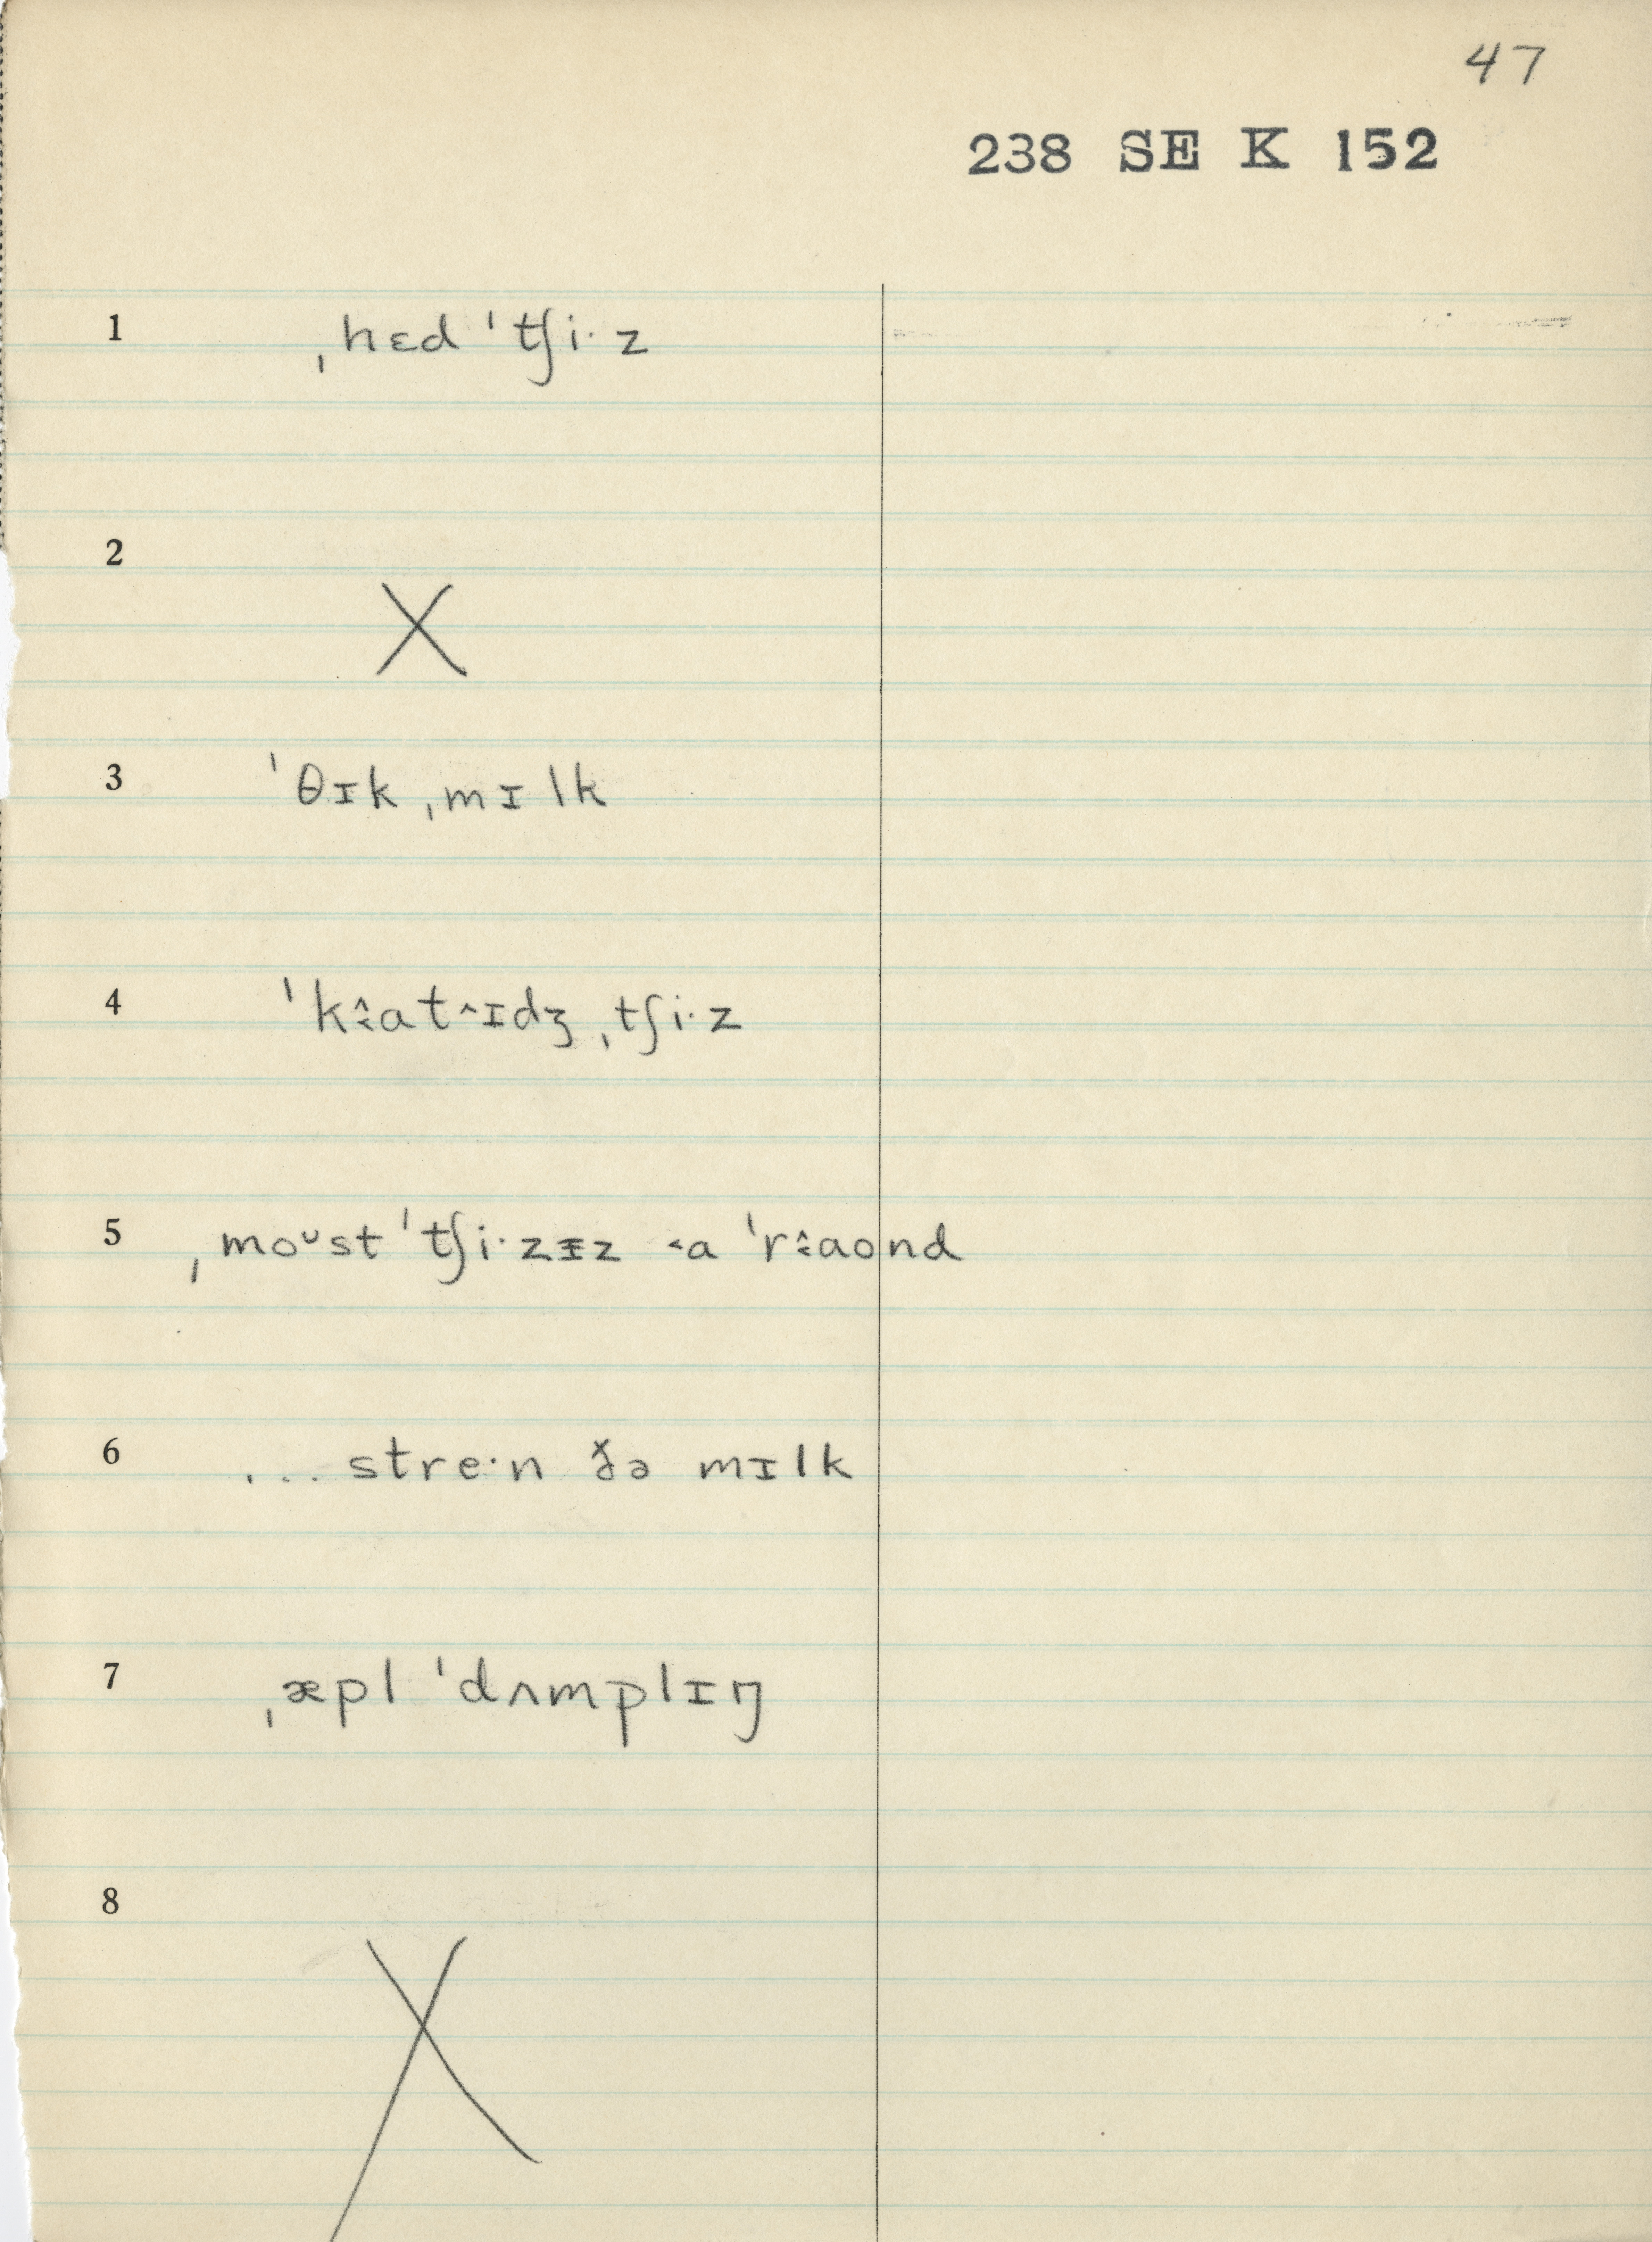 47
238 SE K 152
1 ˌhɛd ˈtʃi·z
2 X
3 ˈθɪk ˌmɪlk
4 ˈkɜ̂at^ɪdʒ ˌtʃi·z
5 ˌmoᴗst ˈtʃi·zɪ̵z ˂a ˈrɜ̂aond
6 ... stre·n ð̌ə mɪlk
7 ˌæpl ˈdʌmplɪŋ
8 X